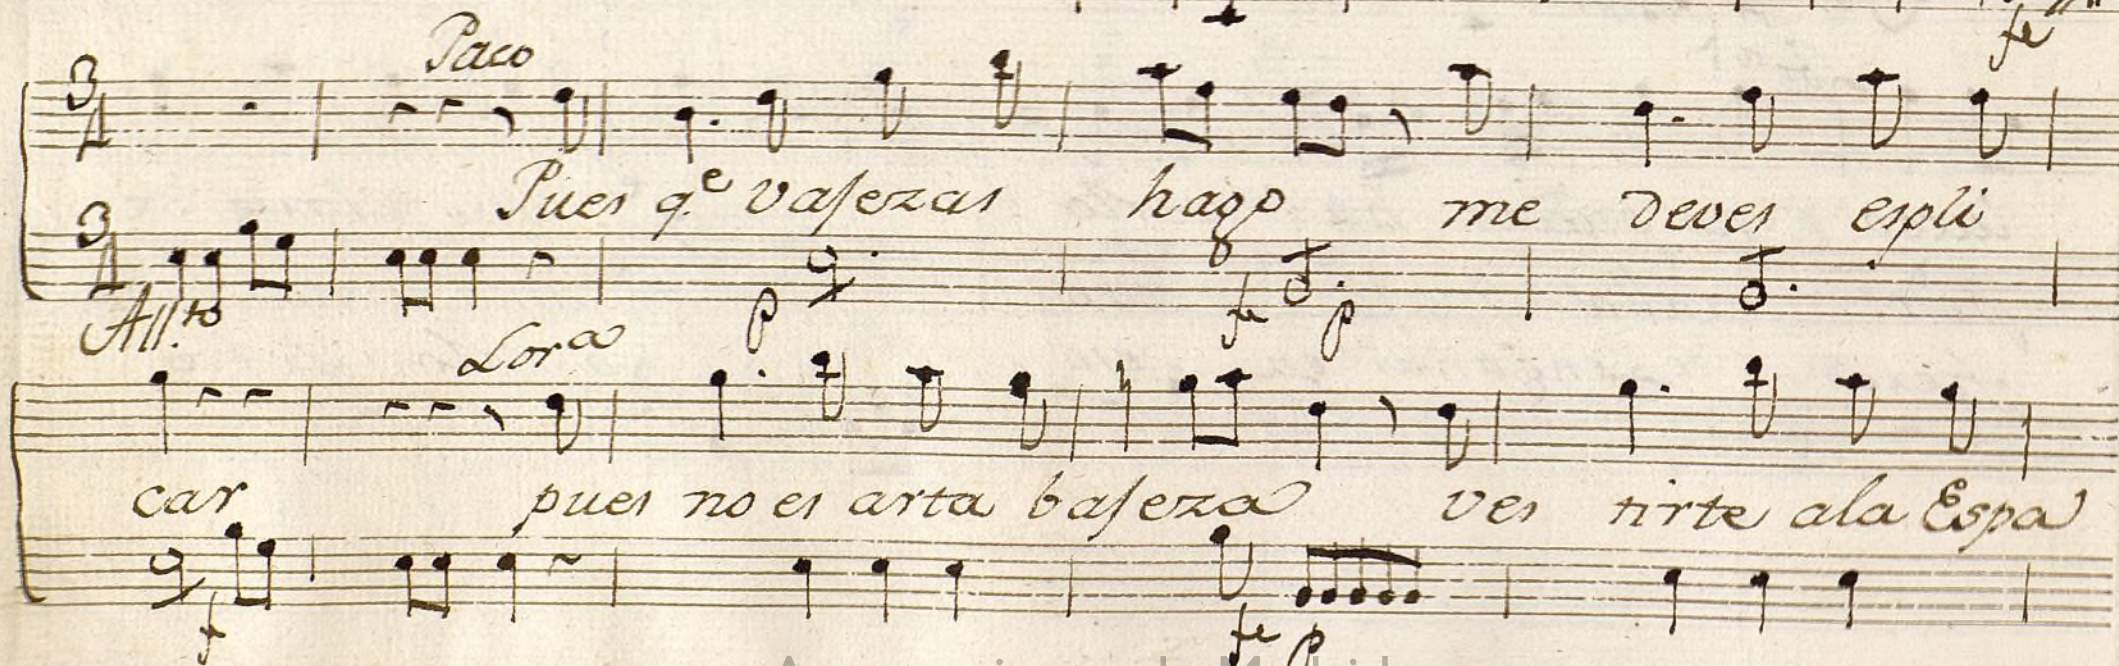 fe
Paco
3
4
Pues q.e vasezas hago me deves espli
3
4
All.to
p fe p
Lora
car pues no es arta baseza ves tirte ala Espa
f fe p